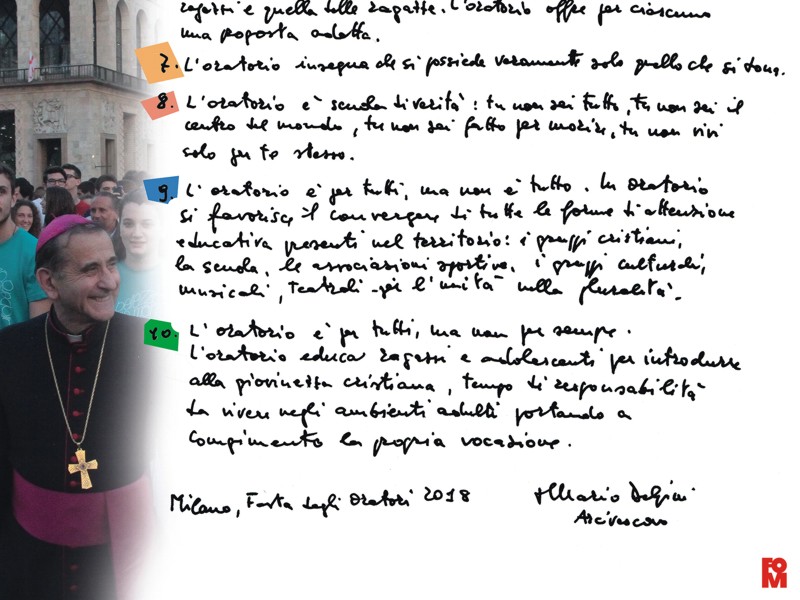 ragazzi e quella delle ragazze. L'oratorio offre per ciascuno
una proposta adatta.
7. L'oratorio insegna che si possiede veramente solo quello che si dona.
8. L'oratorio è scuola di verità: tu non sei tutto, tu non sei il
centro del mondo, tu non sei fatto per morire, tu non vivi
solo per te stesso.
9. L'oratorio è per tutti, ma non è tutto. In oratorio
si favorisce il convergere di tutte le forme di attenzione
educativa presenti nel territorio: i gruppi cristiani,
la scuola, le associazioni sportive, i gruppi culturali,
musicali, teatrali per l'unità nella pluralità.
10. L'oratorio è per tutti, ma non per sempre.
L'oratorio educa ragazzi e adolescenti per introdurre
alla giovinezza cristiana, tempo di responsabilità
da vivere negli ambienti adulti portando a
compimento la propria vocazione.
Milano, Festa degli oratori 2018
+ Mario Delpini
Arcivescovo
FOM